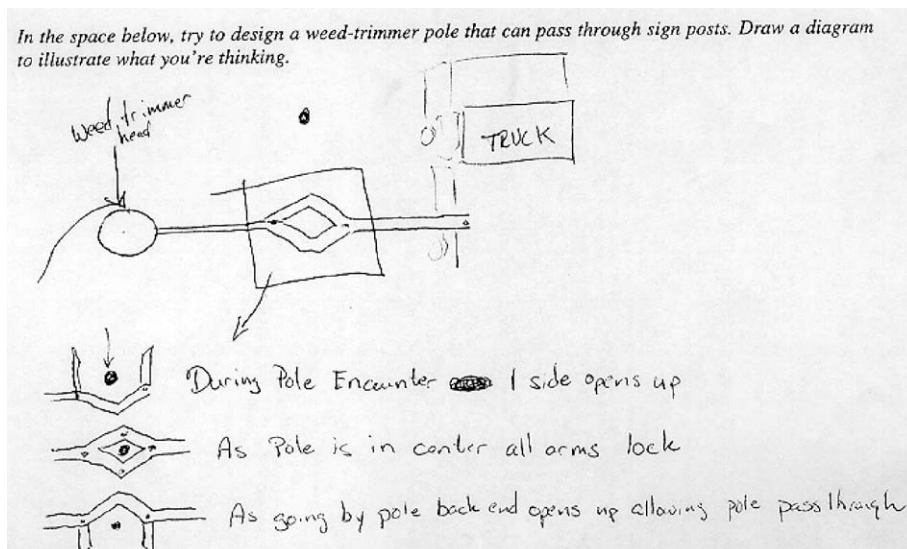 In the space below, try to design a weed-trimmer pole that can pass through sign posts. Draw a diagram
to illustrate what you're thinking.
Weed trimmer
head
TRUCK
During Pole Encounter 1 side opens up
As Pole is in center all arms lock
As going by pole back end opens up allowing pole pass through